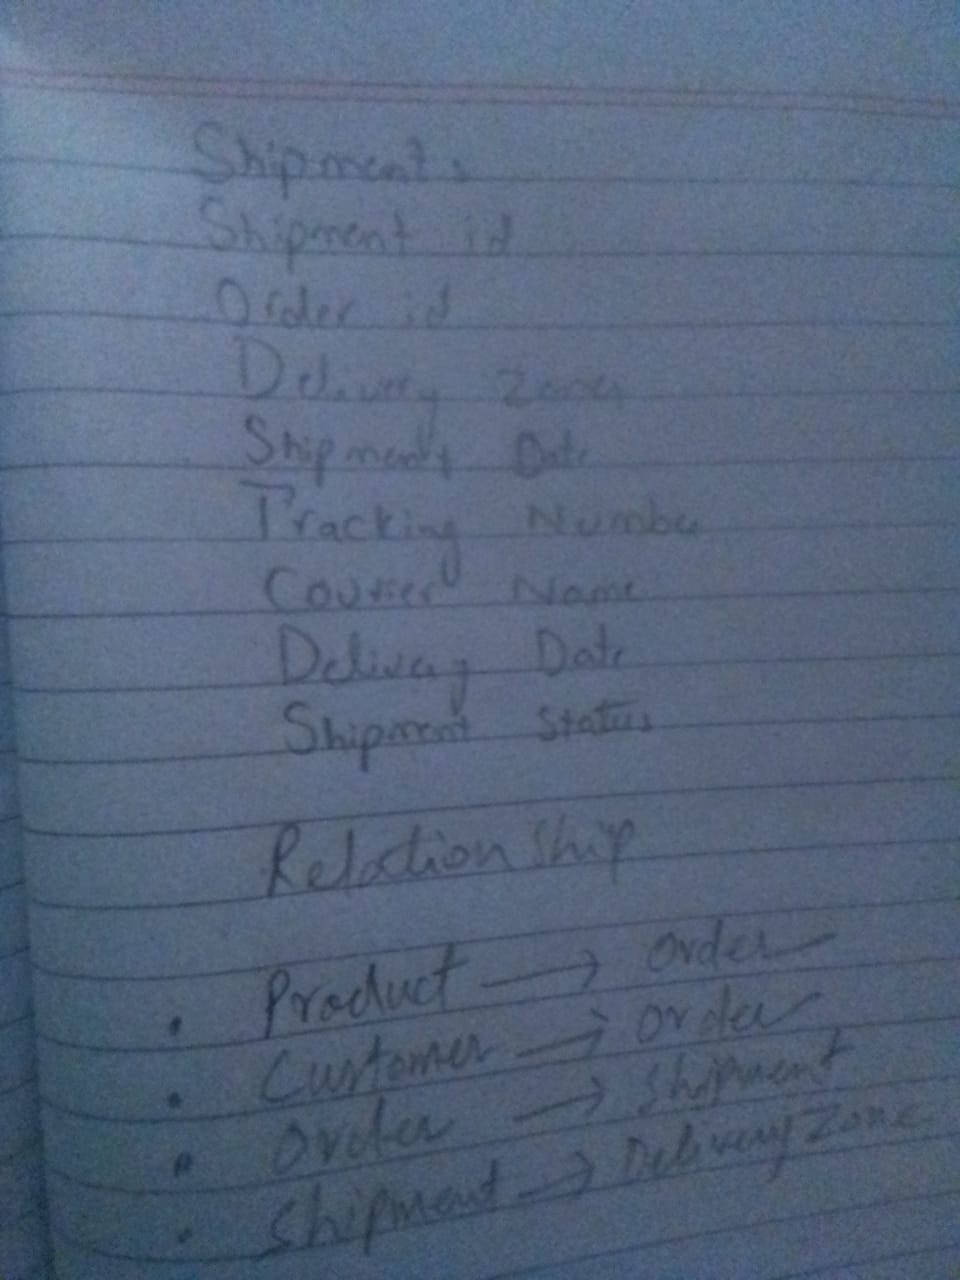 Shipments
Shipment id
Order id
Delivery Zones
Shipment Date
Tracking Number
Courier Name
Delivery Date
Shipment Status
Relationship
• Product → Order
• Customer → Order
• Order → Shipment
• Shipment → Delivery Zone